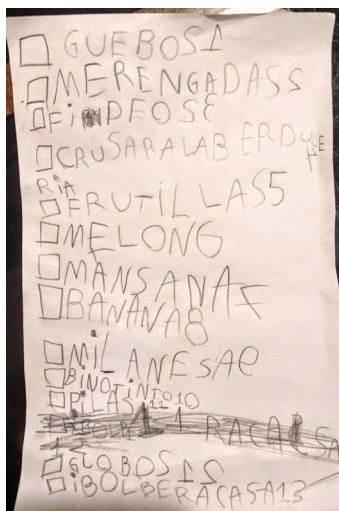 GUEBOS1
MERENGADASS
FiDEOSE
CRUSARALABERDULE
RiA
FRUTiLLAS5
MELONG
MANSANAF
BANANA8
MiLANESAe
BINOTiNTO10
PiLAS11
GLOBOS12
iBOLBERACASA13